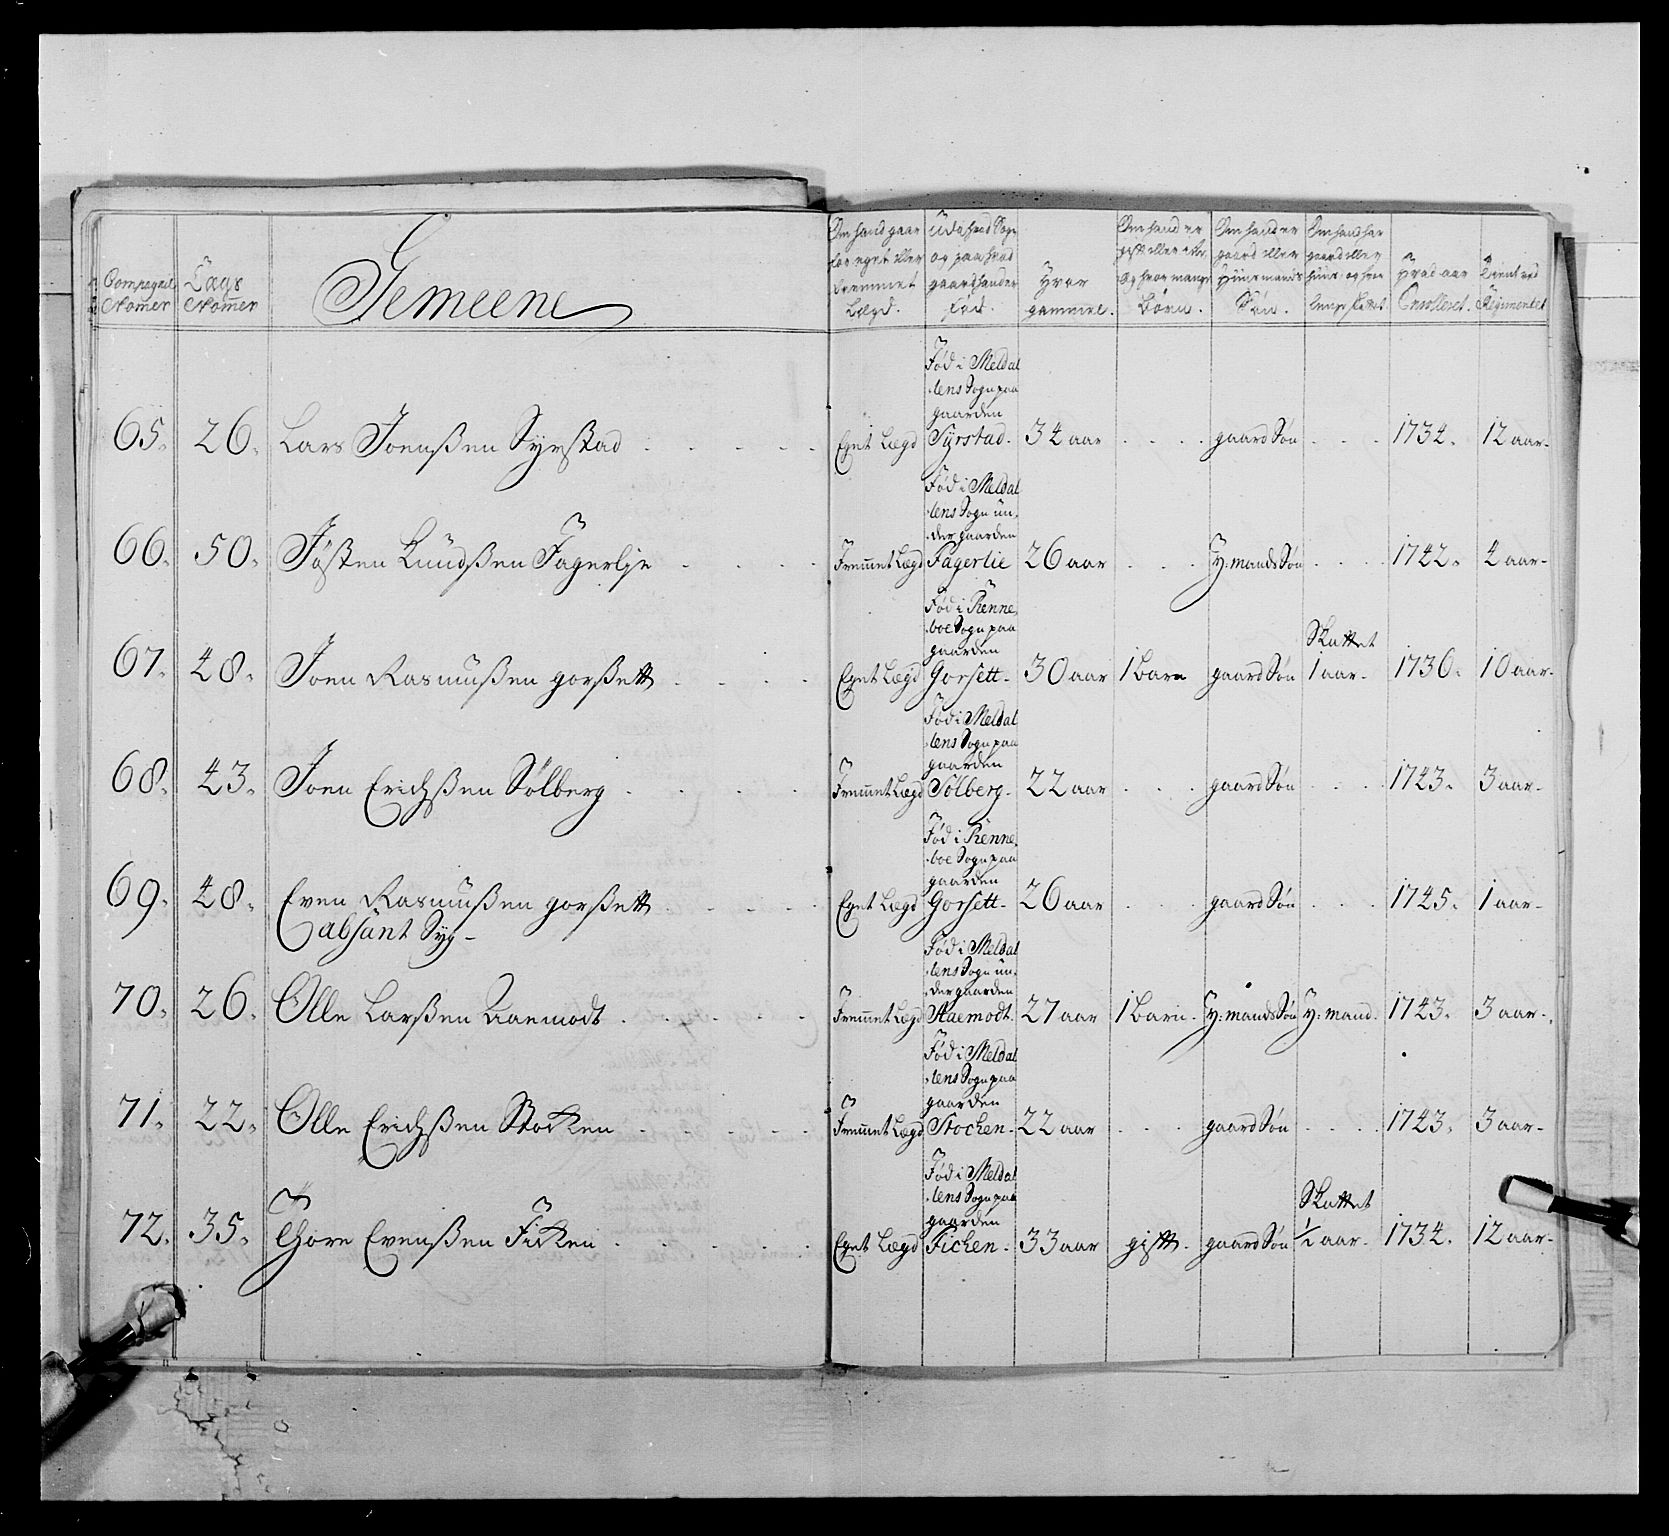 Compagnie Nomer
Lægs Nomer
Gemeene
Om hand gaar for eget eller fremmet Lægd.
Udaf hvad Sogn og paa hvad gaard hand er Fød.
Hvor gammel.
Om hand er gift eller ei, Og hvor mange Børn.
Om hand er gaard eller Huusmands Søn.
Om hand har gaard eller Huus, og hvor lenge skattet.
Hvad aar Enrolleret.
Tient ved Regimentet
65. 26. Lars Joenßen Syrstad Eget Lægd Fød i Meldallens Sogn paa gaarden Syrstad. 34 aar gaard Søn 1734. 12 aar.
66. 50. Jøsten Knudßen Fagerlje Fremmet Lægd Fød i Meldallens Sogn under gaarden Fagerlie 26 aar H: mands Søn 1742. 4 aar.
67. 48. Joen Rasmußen gorßett Eget Lægd Fød i Renneboe Sogn paa gaarden Gorsett. 30 aar 1 Barn gaard Søn Skattet 1 aar. 1736. 10 aar.
68. 43. Joen Erichßen Sølberg Fremmet Lægd Fød i Meldallens Sogn paa gaarden Sølberg. 22 aar gaard Søn 1743. 3 aar.
69. 48. Even Rasmußen gorßett Eget Lægd Fød i Renneboe Sogn paa gaarden Gorsett. 26 aar gaard Søn 1745. 1 aar.
absänt Syg
70. 26. Olle Larßen Aaemodt Fremmet Lægd Fød i Meldallens Sogn under gaarden Aaemodt. 27 aar 1 Barn. H: mands Søn H: mand. 1743. 3 aar.
71. 22. Olle Erichßen Stocken Fremmet Lægd Fød i Meldallens Sogn paa gaarden Stochen. 22 aar gaard Søn 1743. 3 aar.
72. 35. Thore Evenßen Ficken Eget Lægd Fød i Meldallens Sogn paa gaarden Fichen. 33 aar gift. gaard Søn Skattet 1/2 aar. 1734. 12 aar.